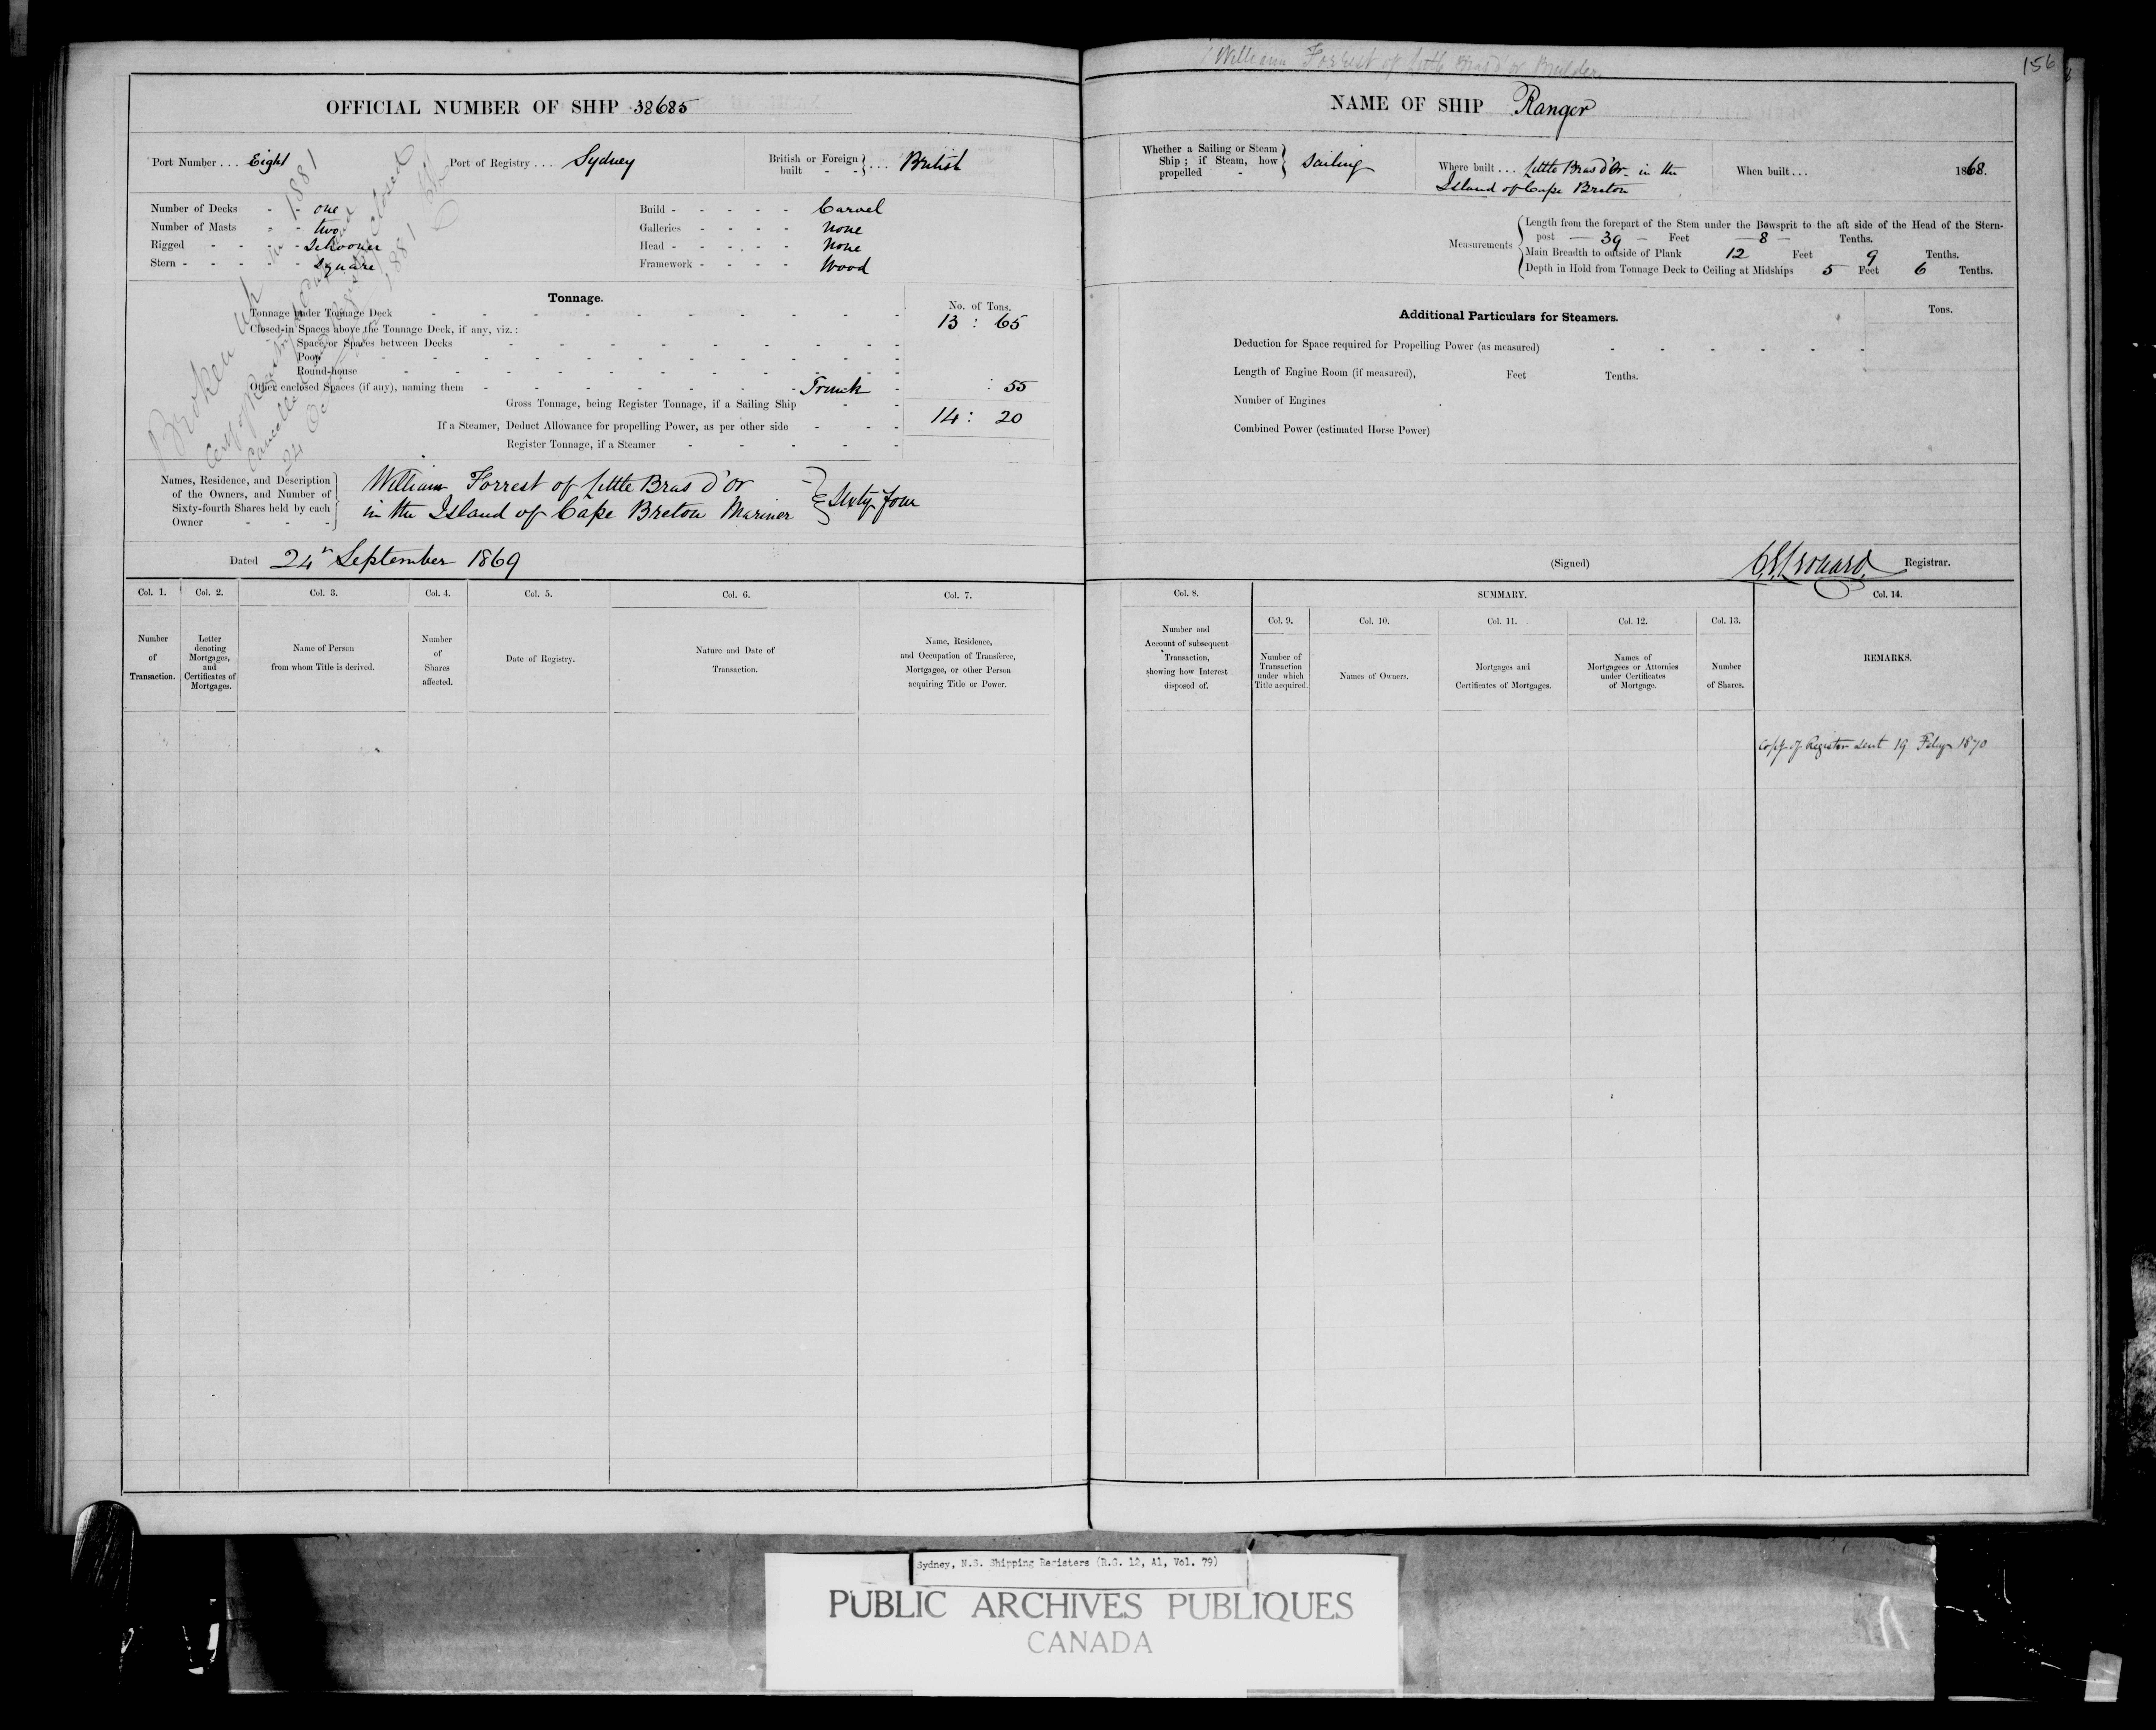 William Forrest of Little Bras d'or Builder
156
OFFICIAL NUMBER OF SHIP 38685
NAME OF SHIP Ranger
Port Number .... Eight
Port of Registry .... Sydney
British or Foreign built - - } ... British
Whether a Sailing or Steam Ship ; if Steam, how propelled - } Sailing
Where built ... Little Bras d'Or in the
Island of Cape Breton
When built ... 1868.
Number of Decks - - one
Number of Masts - - two
Rigged - - - - Schooner
Stern - - - - - Square
Build - - - - - Carvel
Galleries - - - - None
Head - - - - - None
Framework - - - - Wood
Measurements
Length from the forepart of the Stem under the Bowsprit to the aft side of the Head of the Stern-
post — 39 — Feet — 8 — Tenths.
Main Breadth to outside of Plank 12 Feet 9 Tenths.
Depth in Hold from Tonnage Deck to Ceiling at Midships 5 Feet 6 Tenths.
Broken up in 1881
Cert of Registry
Cancelled Registry closed
24 Oct 1881
Tonnage.
No. of Tons.
Tonnage under Tonnage Deck 13 : 65
Closed-in Spaces above the Tonnage Deck, if any, viz. :
Space or Spaces between Decks
Poop
Round-house
Other enclosed Spaces (if any), naming them - Trunk - : 55
Gross Tonnage, being Register Tonnage, if a Sailing Ship
14 : 20
If a Steamer, Deduct Allowance for propelling Power, as per other side
Register Tonnage, if a Steamer
Additional Particulars for Steamers.
Tons.
Deduction for Space required for Propelling Power (as measured)
Length of Engine Room (if measured), Feet Tenths.
Number of Engines
Combined Power (estimated Horse Power)
Names, Residence, and Description
of the Owners, and Number of
Sixty-fourth Shares held by each
Owner - - -
William Forrest of Little Bras d'or
in the Island of Cape Breton Mariner } Sixty four
Dated 24th September 1869
(Signed) Registrar.
Col. 1. Number of Transaction.
Col. 2. Letter denoting Mortgages, and Certificates of Mortgages.
Col. 3. Name of Person from whom Title is derived.
Col. 4. Number of Shares affected.
Col. 5. Date of Registry.
Col. 6. Nature and Date of Transaction.
Col. 7. Name, Residence, and Occupation of Transferee, Mortgagee, or other Person acquiring Title or Power.
Col. 8. Number and Account of subsequent Transaction, showing how Interest disposed of.
SUMMARY.
Col. 9. Number of Transaction under which Title acquired.
Col. 10. Names of Owners.
Col. 11. Mortgages and Certificates of Mortgages.
Col. 12. Names of Mortgagees or Attornies under Certificates of Mortgage.
Col. 13. Number of Shares.
Col. 14. REMARKS.
Copy of Register sent 19 Feby 1870
Sydney, N.S. Shipping Registers (R.G. 12, A1, Vol. 79)
PUBLIC ARCHIVES PUBLIQUES
CANADA